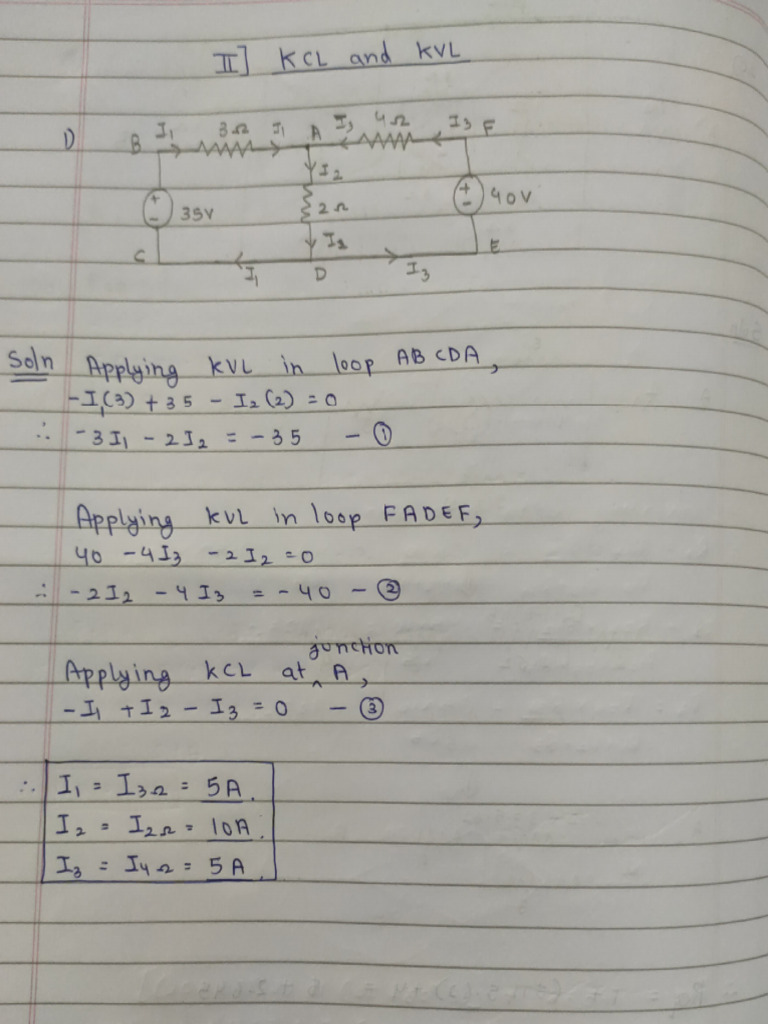 II] KCL and KVL
1)
B I₁ 3Ω I₁ A I₃ 4Ω I₃ F
I₂
+ - 35V 2Ω + - 40V
I₂
C I₁ D I₃ E
Soln Applying KVL in loop ABCDA,
-I₁(3) + 35 - I₂(2) = 0
∴ -3I₁ - 2I₂ = -35 - ①
Applying KVL in loop FADEF,
40 - 4I₃ - 2I₂ = 0
∴ -2I₂ - 4I₃ = -40 - ②
Applying KCL at junction A,
-I₁ + I₂ - I₃ = 0 - ③
∴ I₁ = I3Ω = 5A.
I₂ = I2Ω = 10A.
I₃ = I4Ω = 5A.